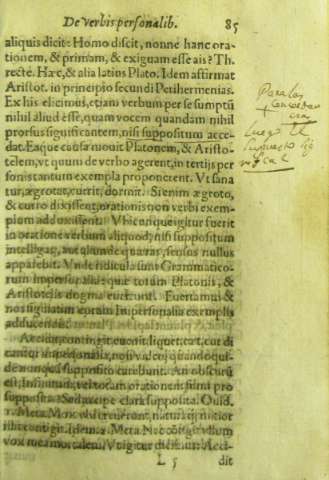 De verbis personalib. 85
aliquis dicit: Homo discit, nonne hanc ora-
tionem, & primam, & exiguam esse ais? Th.
recte. Hæc, & alia latius Plato. Idem affirmat
Aristot. in principio secundi Perihermenias.
Ex his elicimus, etiam verbum per se sumptũ
nihil aliud esse, quam vocem quandam nihil
prorsus significantem, nisi suppositum acce-
dat. Eaque causa nouit Platonem, & Aristo-
telem, vt quum de verbo agerent, in tertijs per
sonis tantum exempla proponerent. Vt sana
tur, ægrotat, currit, dormit. Si enim ægroto,
& curro dixissent, orationis non verbi exem-
plum adduxissent. Vbicunque igitur fuerit
in oratione verbum aliquod, nisi suppositum
intelligas, aut aliunde quæras, sensus nullus
apparebit. Vnde ridicula sunt Grammatico-
rum impersonalia: quæ totum Platonis, &
Aristotelis dogma euertunt. Euertamus &
nos sigillatim eorum Impersonalia exemplis
adducendis.
Accidit, contingit, euenit, liquet, cur di
cantur impersonalia, non video: quando qui-
de nunquã supposito carebunt. An obscurũ
est, Infinitum, vel totam orationem sumi pro
supposito? Sed accipe clara supposita. Ouid.
Meta. natu
Meta. Nec cõtigit vllum
vox mea mortalem. Vtigitur dicimus: Acci-
L 5 dit